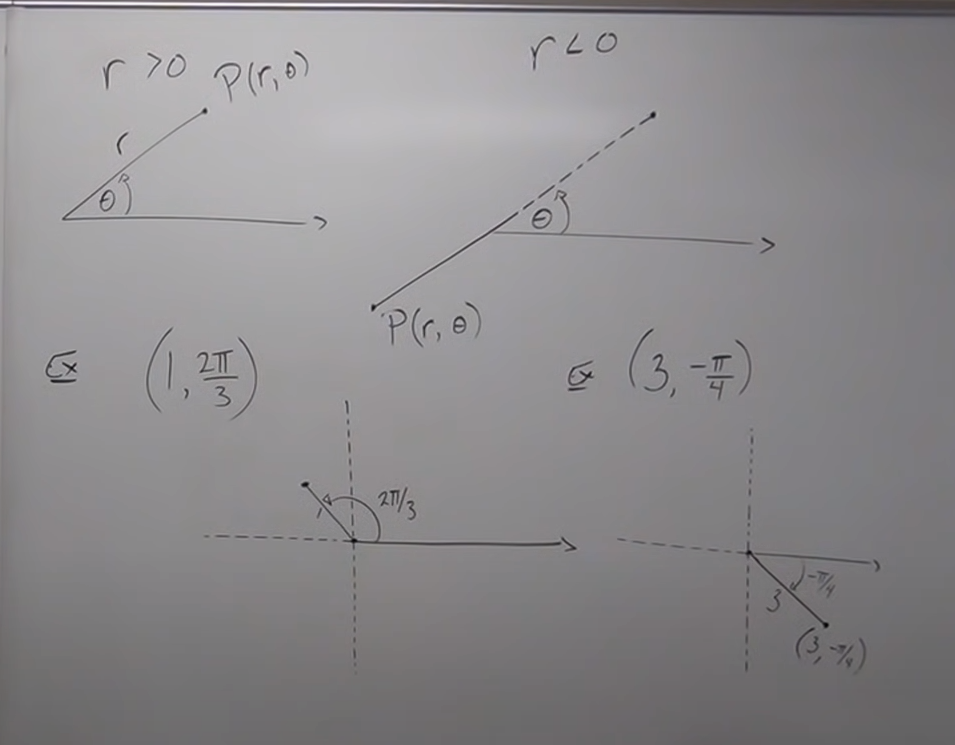 r > 0
P(r, θ)
r
θ
r < 0
θ
P(r, θ)
Ex (1, 2π/3)
2π/3
1
Ex (3, -π/4)
-π/4
3
(3, -π/4)